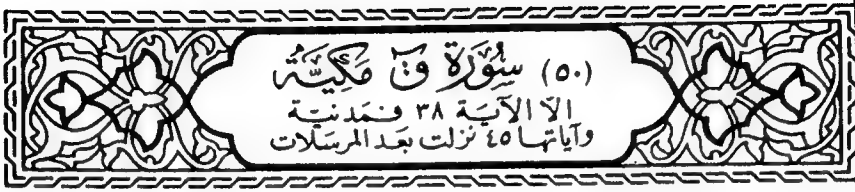 (٥٠) سُورَة قٓ مَكِيَّة
الا الآية ٣٨ فمدنية
وآياتها ٤٥ نزلت بعد المرسلات